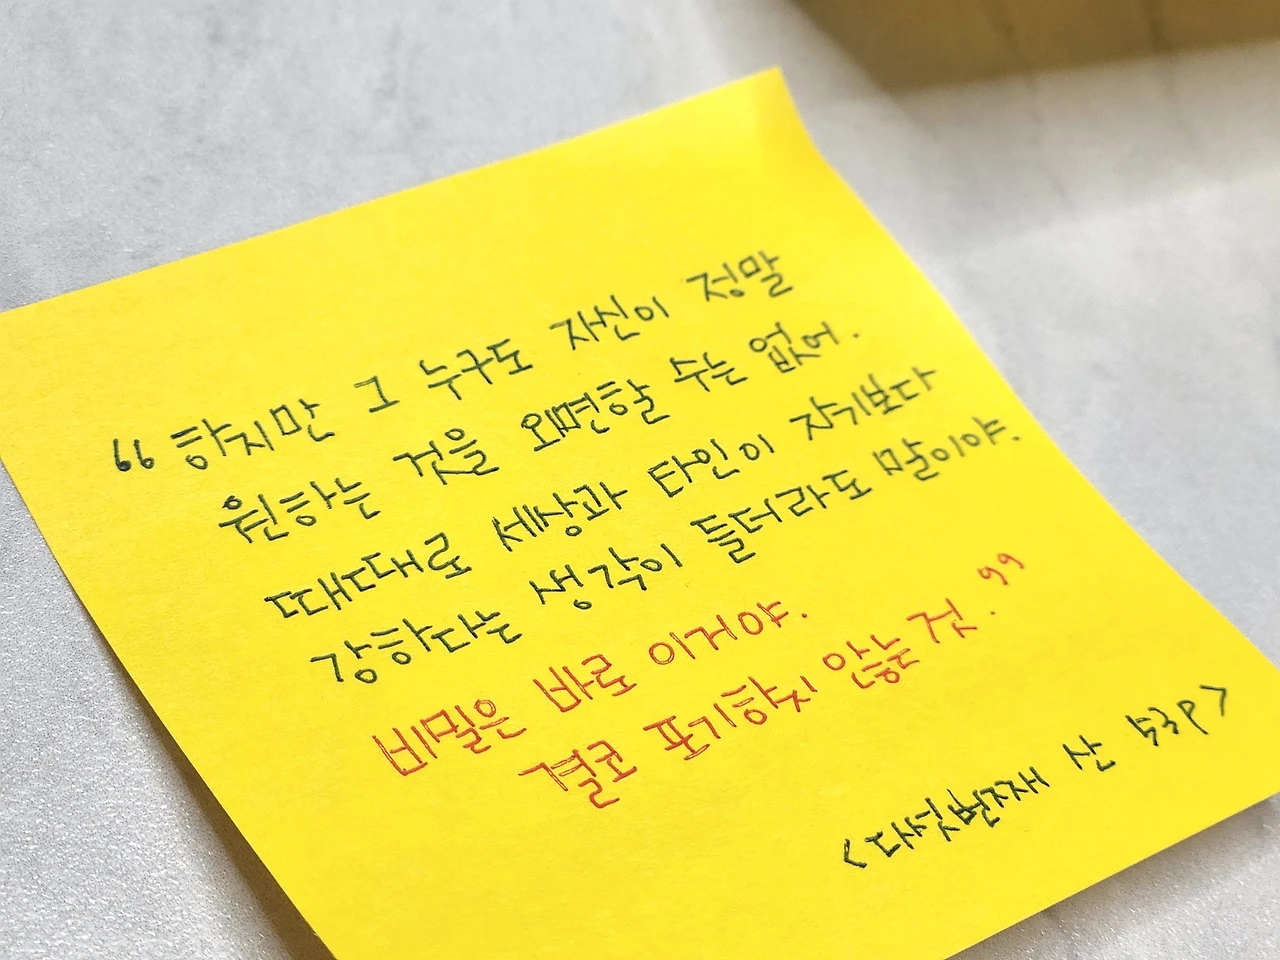 “하지만 그 누구도 자신이 정말
원하는 것을 외면할 수는 없어.
때대로 세상과 타인이 자기보다
강하다는 생각이 들더라도 말이야.
비밀은 바로 이거야.
결코 포기하지 않는 것.”
<다섯번째 산 53P>